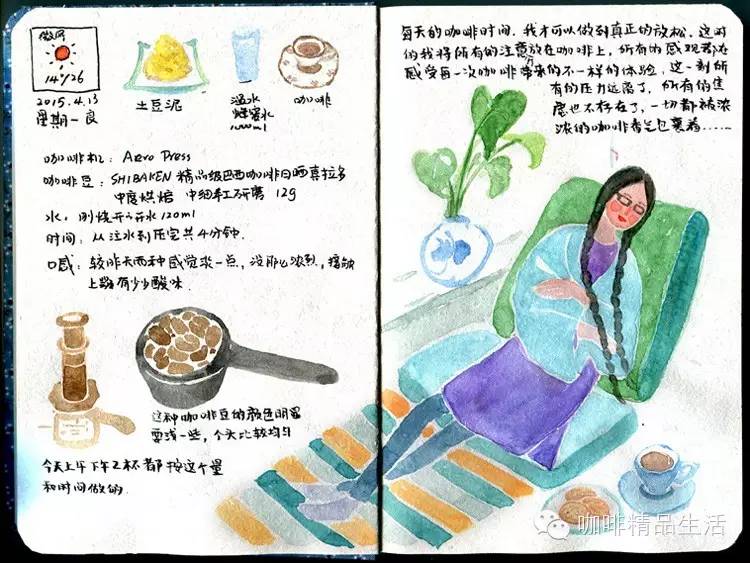 微风
14°/26
2015.4.13
星期一 良
土豆泥
温水
蜂蜜水
1000ml
咖啡
咖啡机: Aero Press
咖啡豆: SHIBAKEN 精品级巴西咖啡日晒喜拉多
中度烘焙 中细手工研磨 12g
水: 刚烧开的开水120ml
时间: 从注水到压完共4分钟.
口感: 较昨天两种感觉淡一点, 没那么浓烈, 接触
上颚有少少酸味.
这种咖啡豆的颜色明显
要浅一些, 个头比较均匀
今天上午下午2杯都按这个量
和时间做的.
每天的咖啡时间, 我才可以做到真正的放松, 这时
的我将所有的注意放在咖啡上, 所有的感观都在
感受每一次咖啡带来的不一样的体验, 这一刻所
有的压力远离了, 所有的焦
虑也不存在了, 一切都被浓
浓的咖啡香气包裹着......
咖啡精品生活